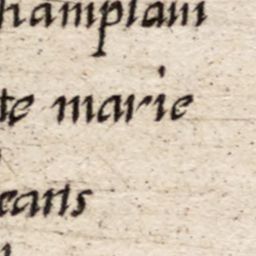 hamplain
te marie
eans